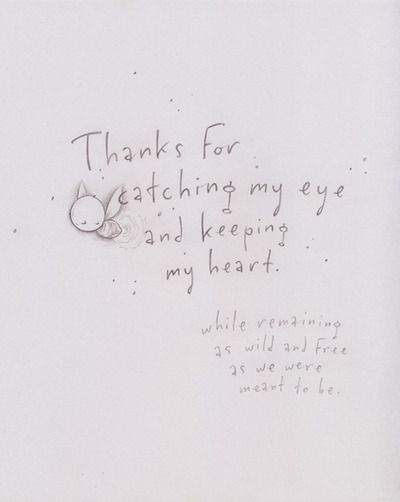 Thanks for
catching my eye
and keeping
my heart.
while remaining
as wild and free
as we were
meant to be.